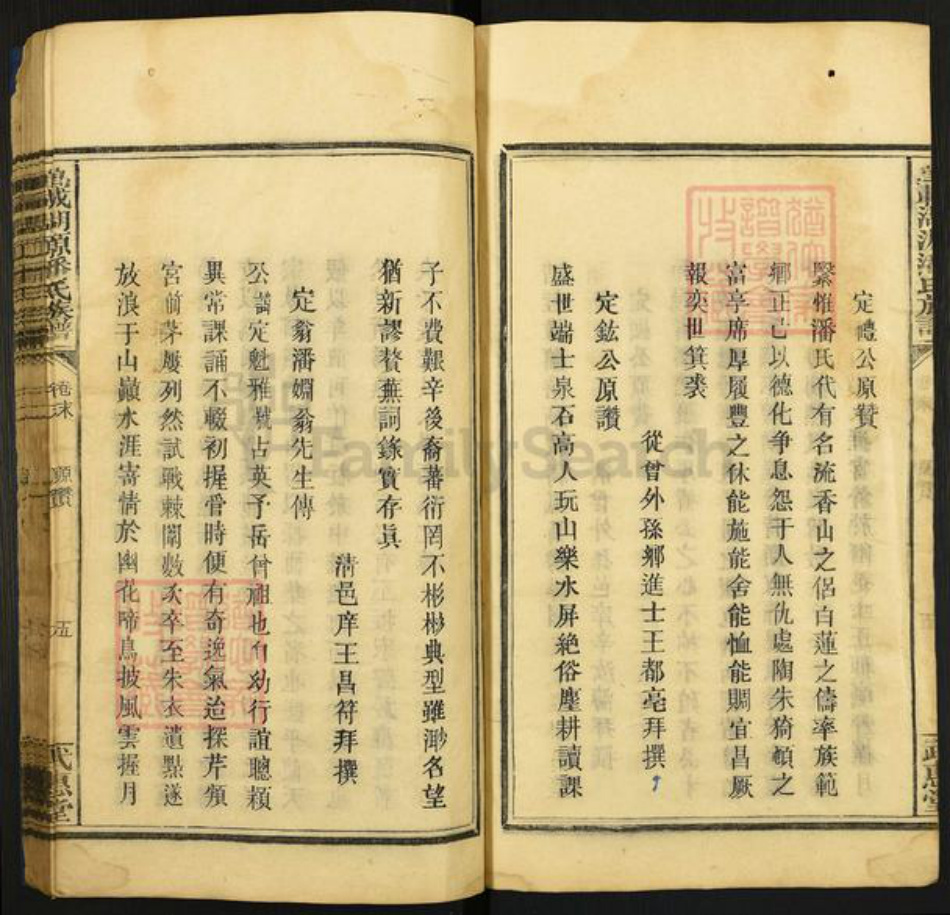 定禮公原贊
繄惟潘氏代有名流香山之侶白蓮之儔率族範
鄉正己以德化爭息怨于人無仇處陶朱猗頓之
富亨席厚履豐之休能施能舍能恤能賙宜昌厥
報奕世箕裘
從曾外孫鄉進士王都亳拜撰
定鋐公原讚
盛世端士泉石高人玩山樂水屏絶俗塵耕讀課
子不費艱辛後裔蕃衍罔不彬彬典型雖渺名望
猶新謬贅蕪詞錄實存眞
清邑庠王昌符拜撰
定翁潘嫺翁先生傳
公諱定魁雅號占英予岳曾祖也自幼行誼聰穎
異常課誦不輟初握管時便有奇逸氣迨探芹頖
宮前茅屢列然試戰棘闈數次卒至朱衣遺點遂
放浪于山巓水涯寄情於幽花啼鳥披風雲握月
潘氏族譜
卷末
原讚
五
武惠堂
FamilySearch